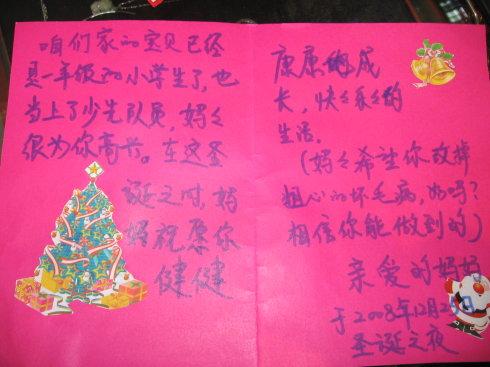 咱们家的宝贝已经
是一年级的小学生了,也
当上了少先队员,妈々
很为你高兴。在这圣
诞之时,妈
妈祝愿你
健健
康康的成
长,快々乐々的
生活。
(妈々希望你改掉
粗心的坏毛病,好吗?
相信你能做到的)
亲爱的妈妈
于2008年12月25日
圣诞之夜